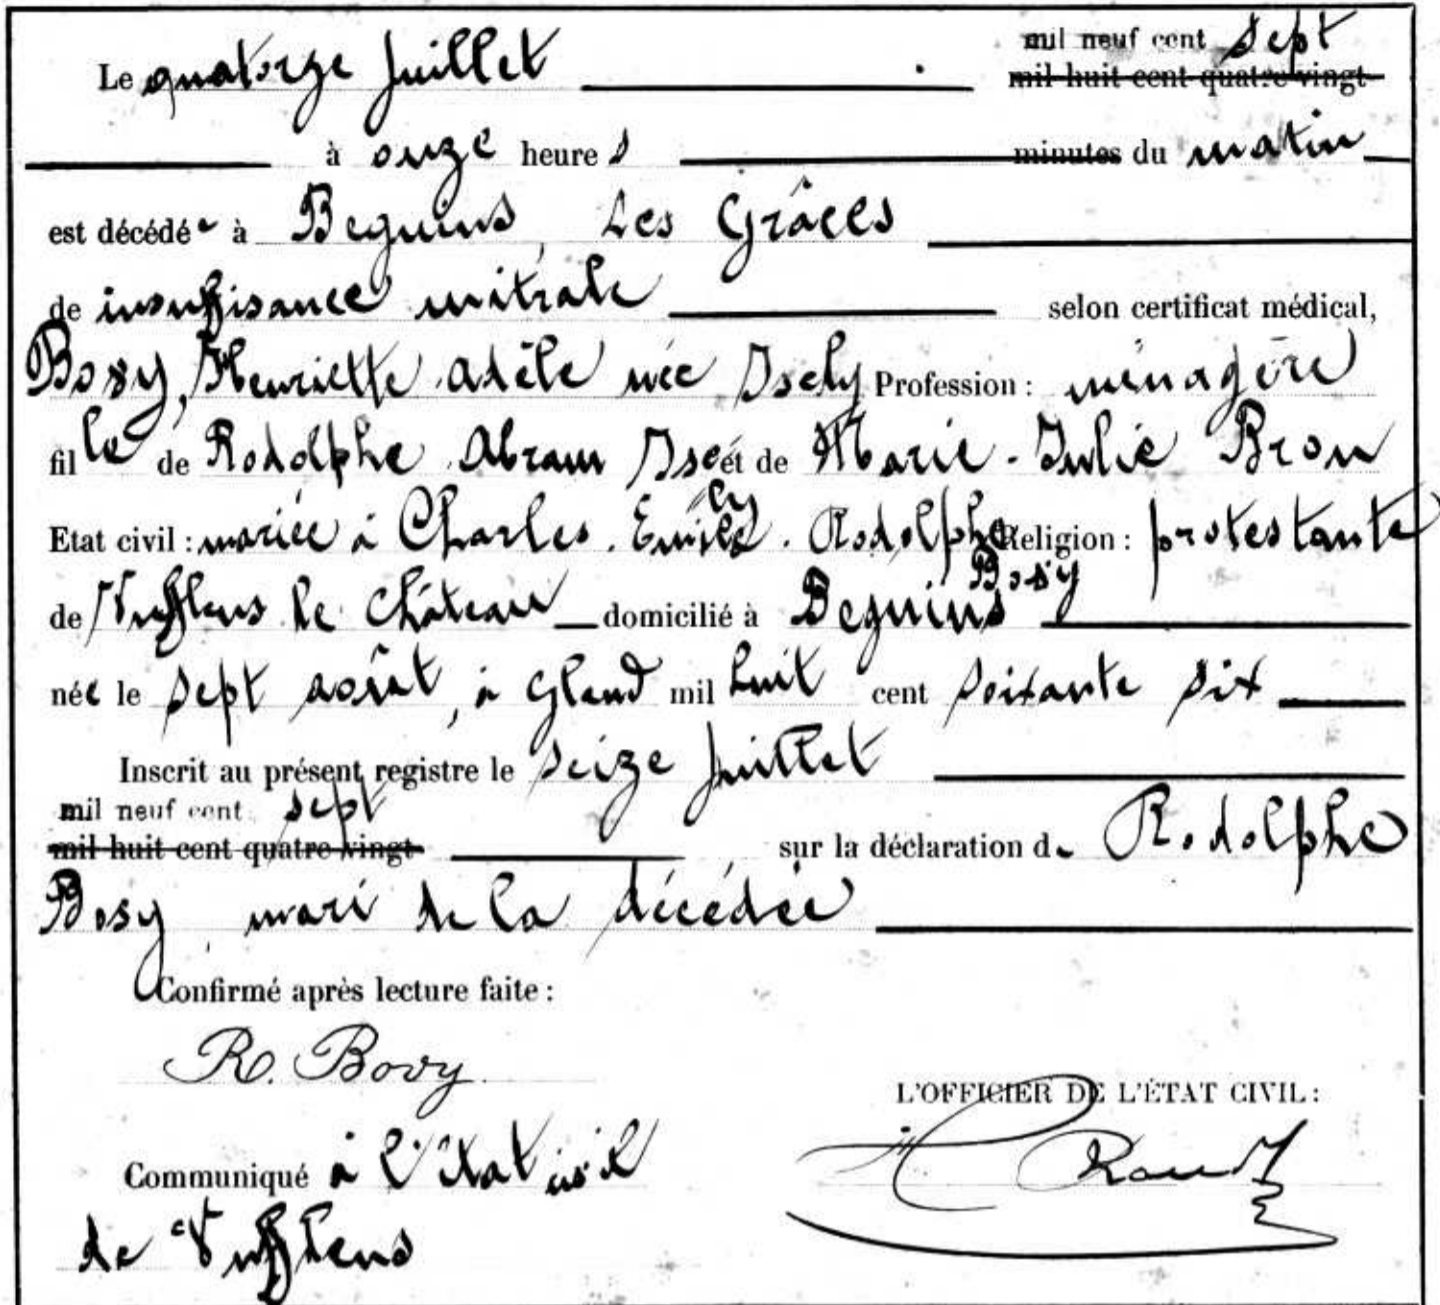 mil neuf cent sept
Le quatorze juillet mil huit cent quatre vingt
à onze heures minutes du matin
est décédée à Beguins, Les Grâces
de insuffisance mitrale selon certificat médical,
Bovy, Henriette Adèle née Isely Profession : ménagère
fille de Rodolphe Abram Isely et de Marie-Julie Bron
Etat civil : mariée à Charles. Emile. Rodolphe Bovy Religion : protestante
de Vufflens le Château domicilié à Beguins
née le sept août, à Gland mil huit cent soixante six
Inscrit au présent registre le seize juillet
mil neuf cent sept
mil huit cent quatre vingt sur la déclaration de Rodolphe
Bovy mari de la décédée
Confirmé après lecture faite :
R. Bovy
L'OFFICIER DE L'ÉTAT CIVIL :
Communiqué à l'état civil
de Vufflens